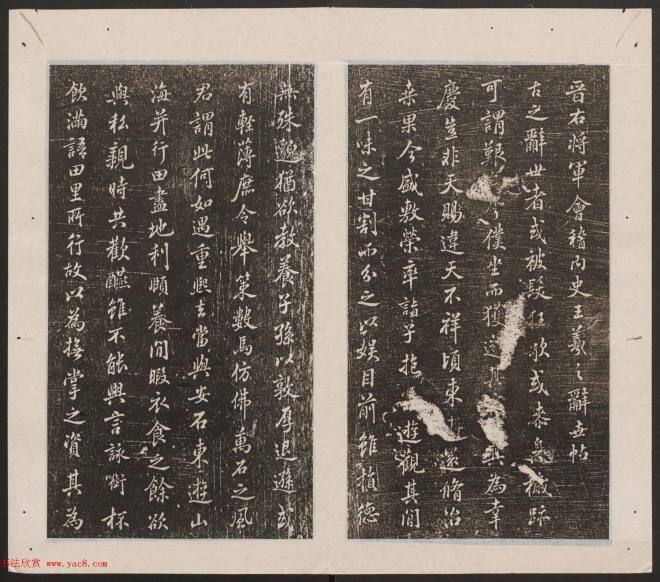 晉右將軍會稽內史王羲之辭世帖
古之辭世者或被髮狂歌或穢跡
可謂艱僕坐而獲逸其為幸
慶豈非天賜違天不祥頃東還脩治
桑果今盛敷榮率諸子抱遊觀其間
有一味之甘割而分之以娛目前雖植德
無殊邈猶欲教養子孫以敦厚退遜或
有輕薄庶令舉策數馬仿佛萬石之風
君謂此何如遇重熙去當與安石東遊山
海并行田盡地利頤養閒暇衣食之餘欲
與私親時共歡讌雖不能興言詠銜杯
飲滿語田里所行故以為撫掌之資其為
书法欣赏 www.yac8.com